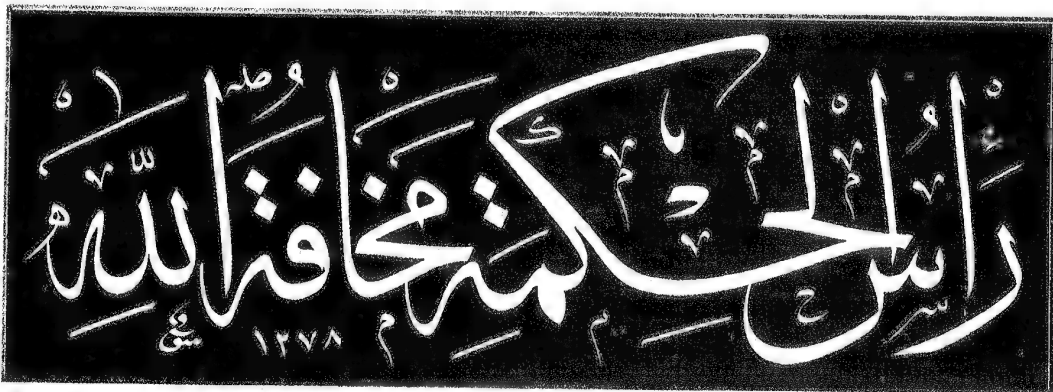 رَأْسُ الْحِكْمَةِ مَخَافَةُ اللَّهِ
١٢٧٨